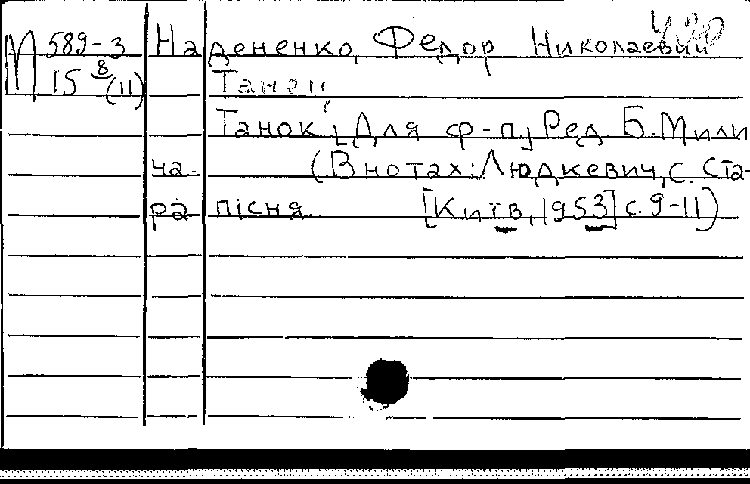 М 589-3 Надененко, Федор Николаевич
15 8 (11) Танец
Танок; [Для ф-п.] Ред. Б. Мили
ча. (В нотах: Людкевич, С. Ста-
ра пісня. [Київ, 1953] с. 9-11)